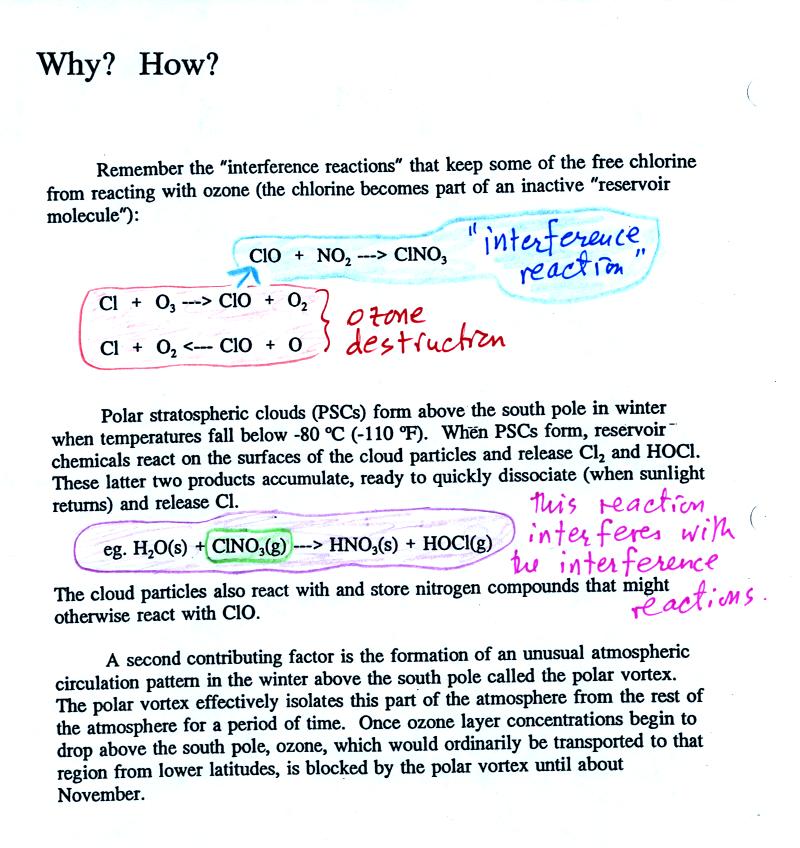 Why? How?
Remember the "interference reactions" that keep some of the free chlorine
from reacting with ozone (the chlorine becomes part of an inactive "reservoir
molecule"):
ClO + NO₂ ---> ClNO₃
"interference
reaction"
Cl + O₃ ---> ClO + O₂
Cl + O₂ <--- ClO + O
ozone
destruction
Polar stratospheric clouds (PSCs) form above the south pole in winter
when temperatures fall below -80 °C (-110 °F). When PSCs form, reservoir
chemicals react on the surfaces of the cloud particles and release Cl₂ and HOCl.
These latter two products accumulate, ready to quickly dissociate (when sunlight
returns) and release Cl.
eg. H₂O(s) + ClNO₃(g) ---> HNO₃(s) + HOCl(g)
this reaction
interferes with
the interference
reactions.
The cloud particles also react with and store nitrogen compounds that might
otherwise react with ClO.
A second contributing factor is the formation of an unusual atmospheric
circulation pattern in the winter above the south pole called the polar vortex.
The polar vortex effectively isolates this part of the atmosphere from the rest of
the atmosphere for a period of time. Once ozone layer concentrations begin to
drop above the south pole, ozone, which would ordinarily be transported to that
region from lower latitudes, is blocked by the polar vortex until about
November.